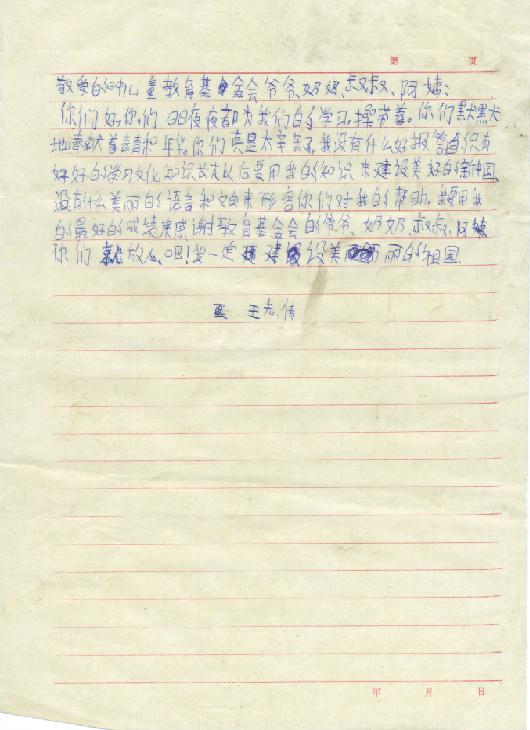 第 页
敬爱的中儿童教育基金会爷爷、奶奶、叔叔、阿姨:
你们好你们日日夜夜都为我们的学习操劳着。你们默默
地奉献着青春和年华你们真是太辛苦了我没有什么好报答只有
好好的学习文化知识长大以后要用我的知识来建设美好的祖国
没有什么美丽的语言和文章来形容你们对我的帮助。我要用我
的最好的成绩来感谢教育基金会的爷爷、奶奶、叔叔、阿姨
你们就放心吧!我一定建设美丽的祖国
王 倩
年 月 日